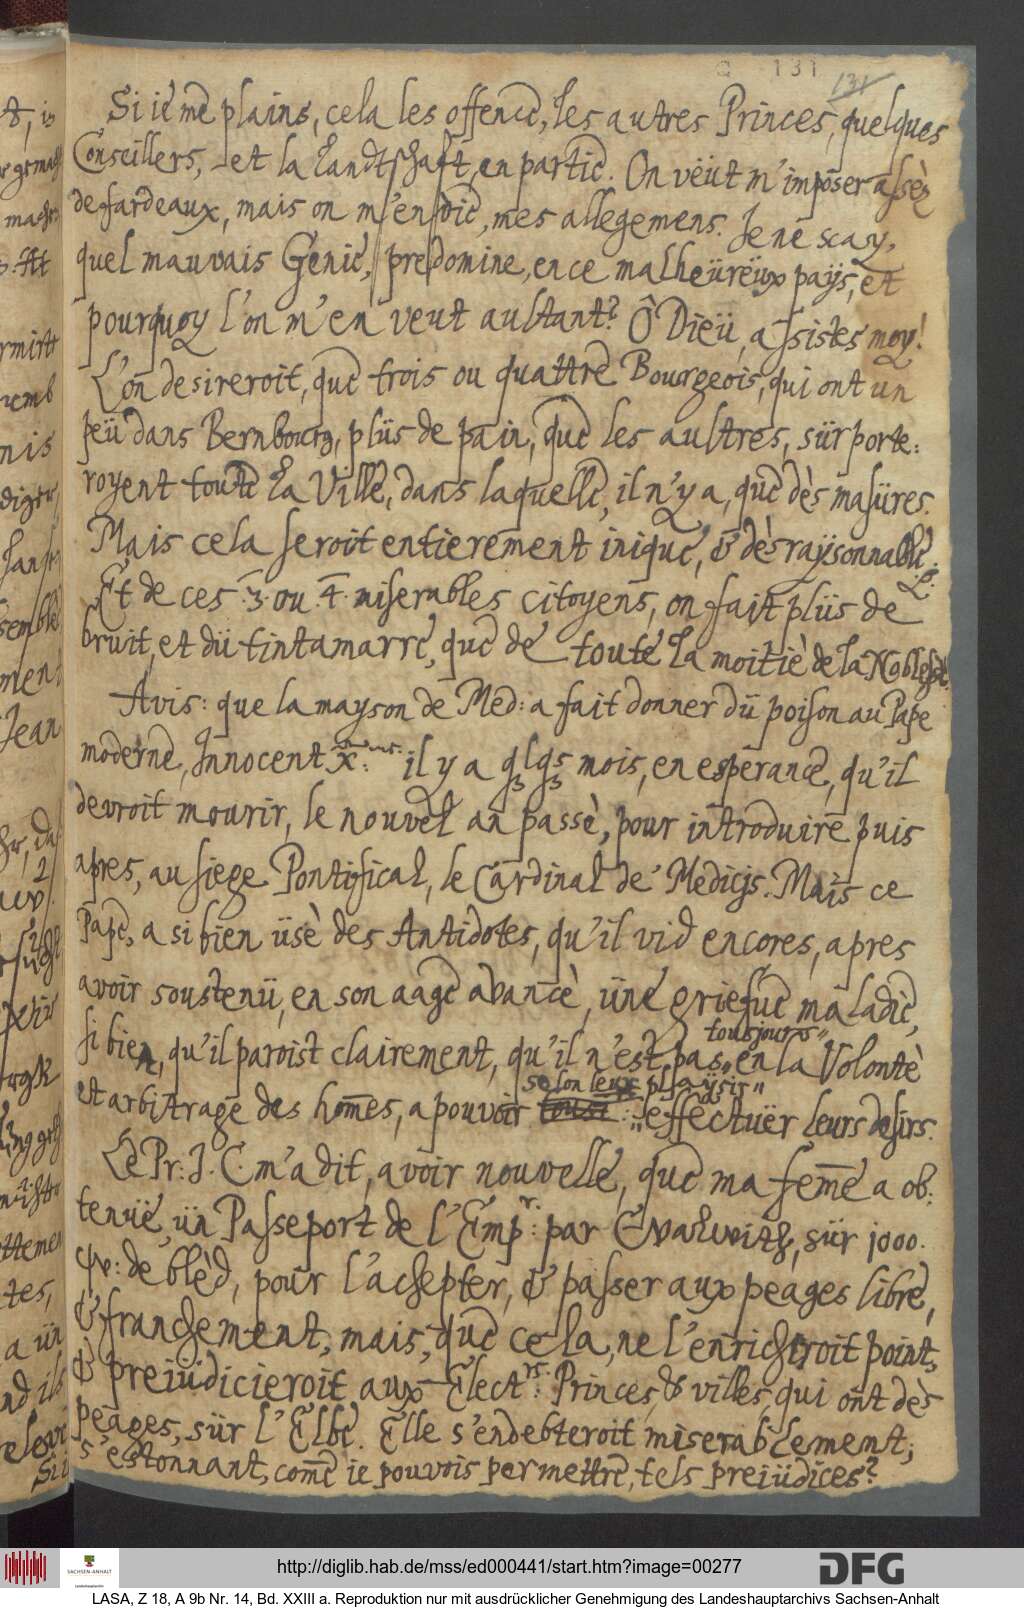 131
131
Si ie me plains, cela les offence, les autres Princes, quelques
Conseillers, et la Landtschaft, en partie. On veüt m'imposer assèz
de fardeaux, mais on m'en die, mes allegemens. Je ne scay,
quel mauvais Genie, predomine, en ce malheüreüx païjs, et
pourquoy l'on m'en veut aultant? Ô Dieü, assistes moy!
L'on desireroit, que trois ou quattre Bourgeois, qui ont un
peü dans Bernbourg, plüs de pain, que les aultres, sürporte:
royent toute La Ville, dans laquelle, il n'y a, que dès masüres.
Mais cela seroit entierement inique, & dèsraÿsonnable.
Et de ces .3. ou .4. miserables citoyens, on fait plüs de
bruit, et dü tintamarre, que de toute la moitiè de la Noblesse.
Avis: que la mayson de Med: a fait donner dü poison au Pape
moderne, Innocent X.mus: il y a qlqs mois, en esperance, qu'il
devroit mourir, le nouvel an passè, pour introduire puis
apres, au siege Pontifical, le Cardinal de' Medicijs. Mais ce
Pape, a si bien üsè des Antidotes, qu'il vid encores, apres
avoir soustenü, en son aage avancè, üne griefue maladie,
si bien, qu'il paroist clairement, qu'il n'est pas, en la Volontè
tousjours
et arbitrage des hom̄es, a pouvoir effectuër leurs desirs.
selon leur plaÿsir
Le Pr: J. C. m'a dit, avoir nouvelle, que ma fem̄e a ob:
tenüe, ün Passeport de l'Emp.r: par Evaltwith, sür 1000.
qv: de blèd, pour l'achepter, & passer aux peages libre,
& franchement, mais, que cela, ne l'enrichiroit point,
& preiüdicieroit aux Elect.rs: Princes, & villes, qui ont dès
peages, sür l'Elbe. Elle s'endebteroit miserablement;
s'estonnant, com̄e ie pouvois permettre, tels preiüdices?
http://diglib.hab.de/mss/ed000441/start.htm?image=00277
SACHSEN-ANHALT
Landeshauptarchiv
DFG
LASA, Z 18, A 9b Nr. 14, Bd. XXIII a. Reproduktion nur mit ausdrücklicher Genehmigung des Landeshauptarchivs Sachsen-Anhalt